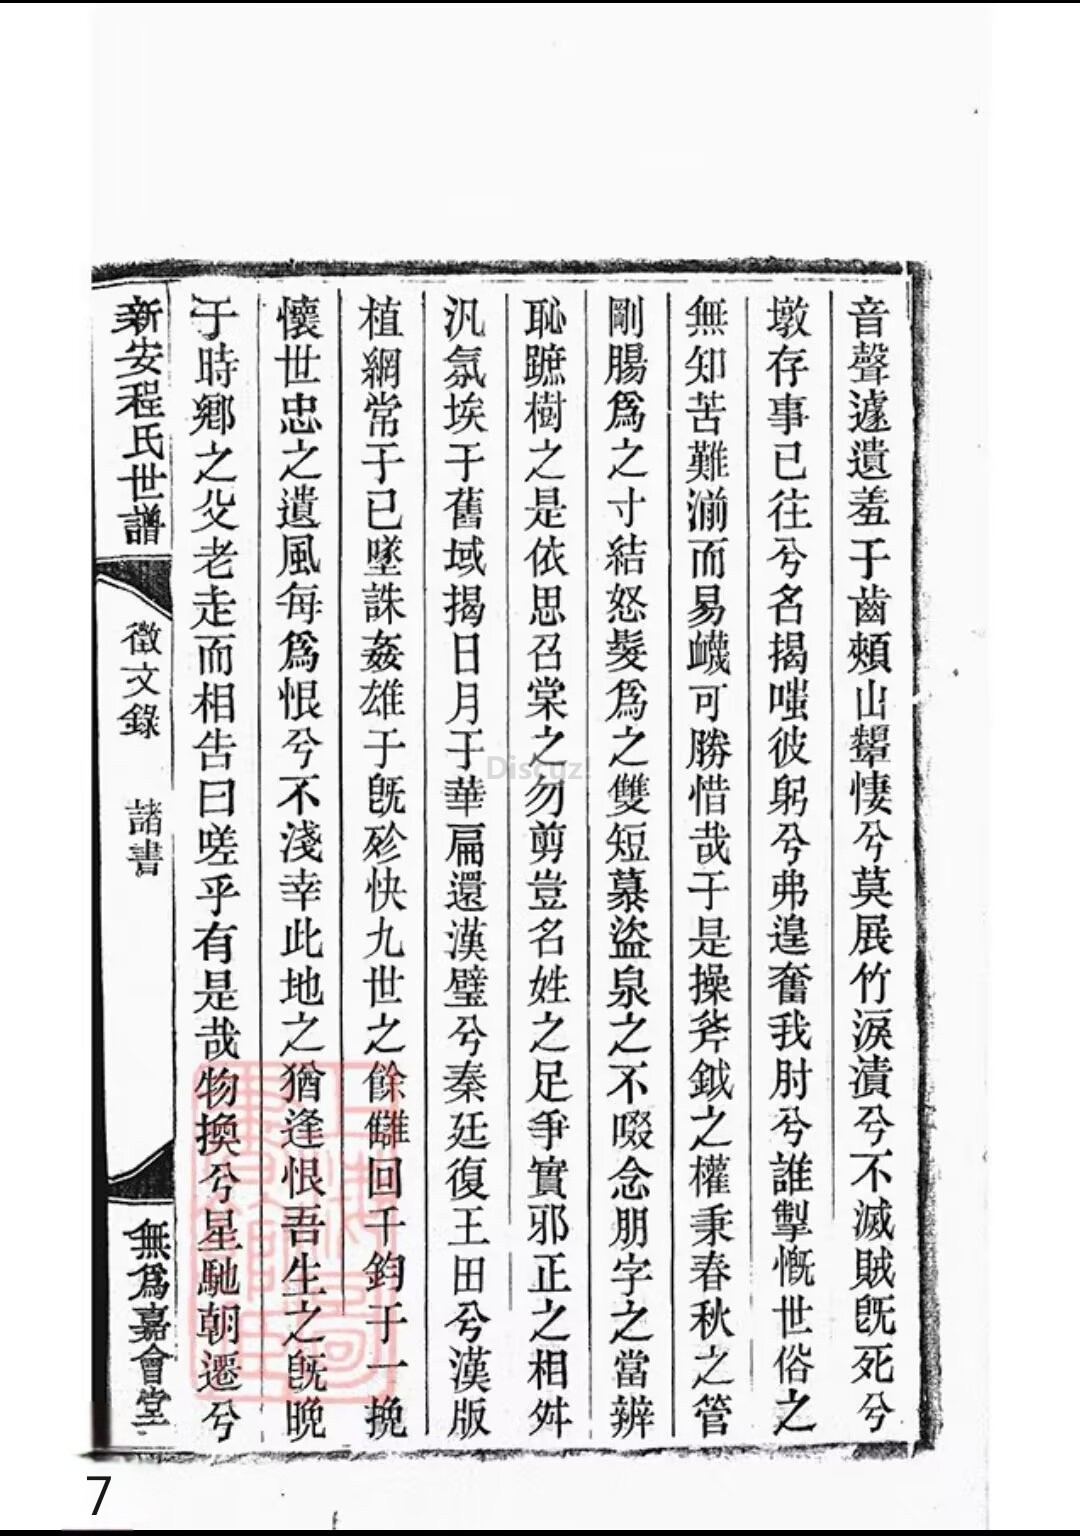 音聲遽遺羞于齒頰山顰悽兮莫展竹淚漬兮不滅賊旣死兮
墩存事已往兮名揭嗤彼躬兮弗遑奮我肘兮誰掣慨世俗之
無知苦難湔而易衊可勝惜哉于是操斧鉞之權秉春秋之管
剛腸爲之寸結怒髮爲之雙短慕盜泉之不啜念朋字之當辨
恥蹠樹之是依思召棠之勿剪豈名姓之足爭實邪正之相舛
汎氛埃于舊域揭日月于華扁還漢璧兮秦廷復王田兮漢版
植綱常于已墜誅姦雄于旣殄快九世之餘讎回千鈞于一挽
懷世忠之遺風每爲恨兮不淺幸此地之猶逢恨吾生之旣晚
于時鄉之父老走而相告曰嗟乎有是哉物換兮星馳朝遷兮
新安程氏世譜
徵文錄
諸書
無爲嘉會堂
Discuz!
7